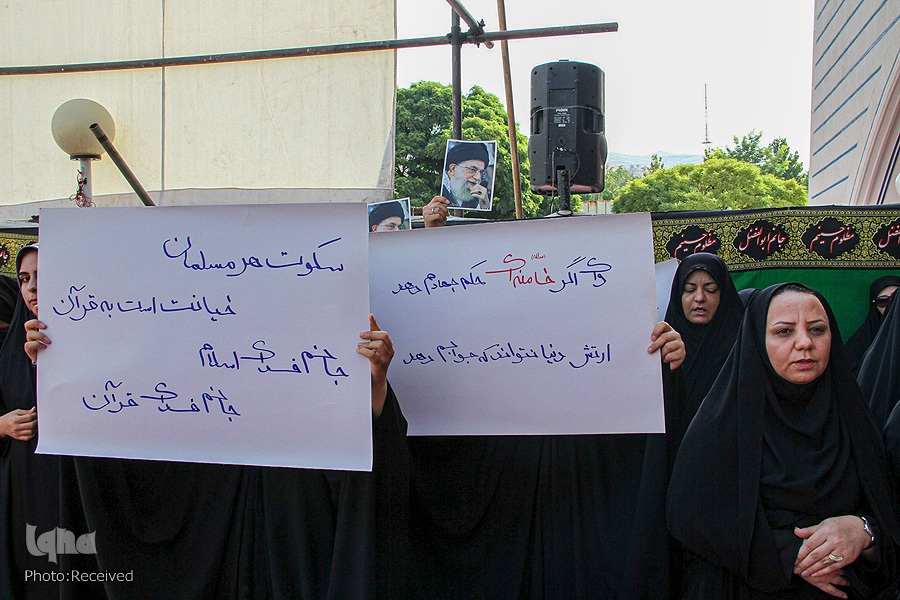 سکوت هر مسلمان
خیانت است به قرآن
جانم فدای اسلام
جانم فدای قرآن
وای اگر خامنه‌ای حکم جهادم دهد
ارتش دنیا نتواند که جوابم دهد
مظلوم حسینم
جانم ابوالفضل
مظلوم حسینم
جانم ابوالفضل
iqna
Photo:Received